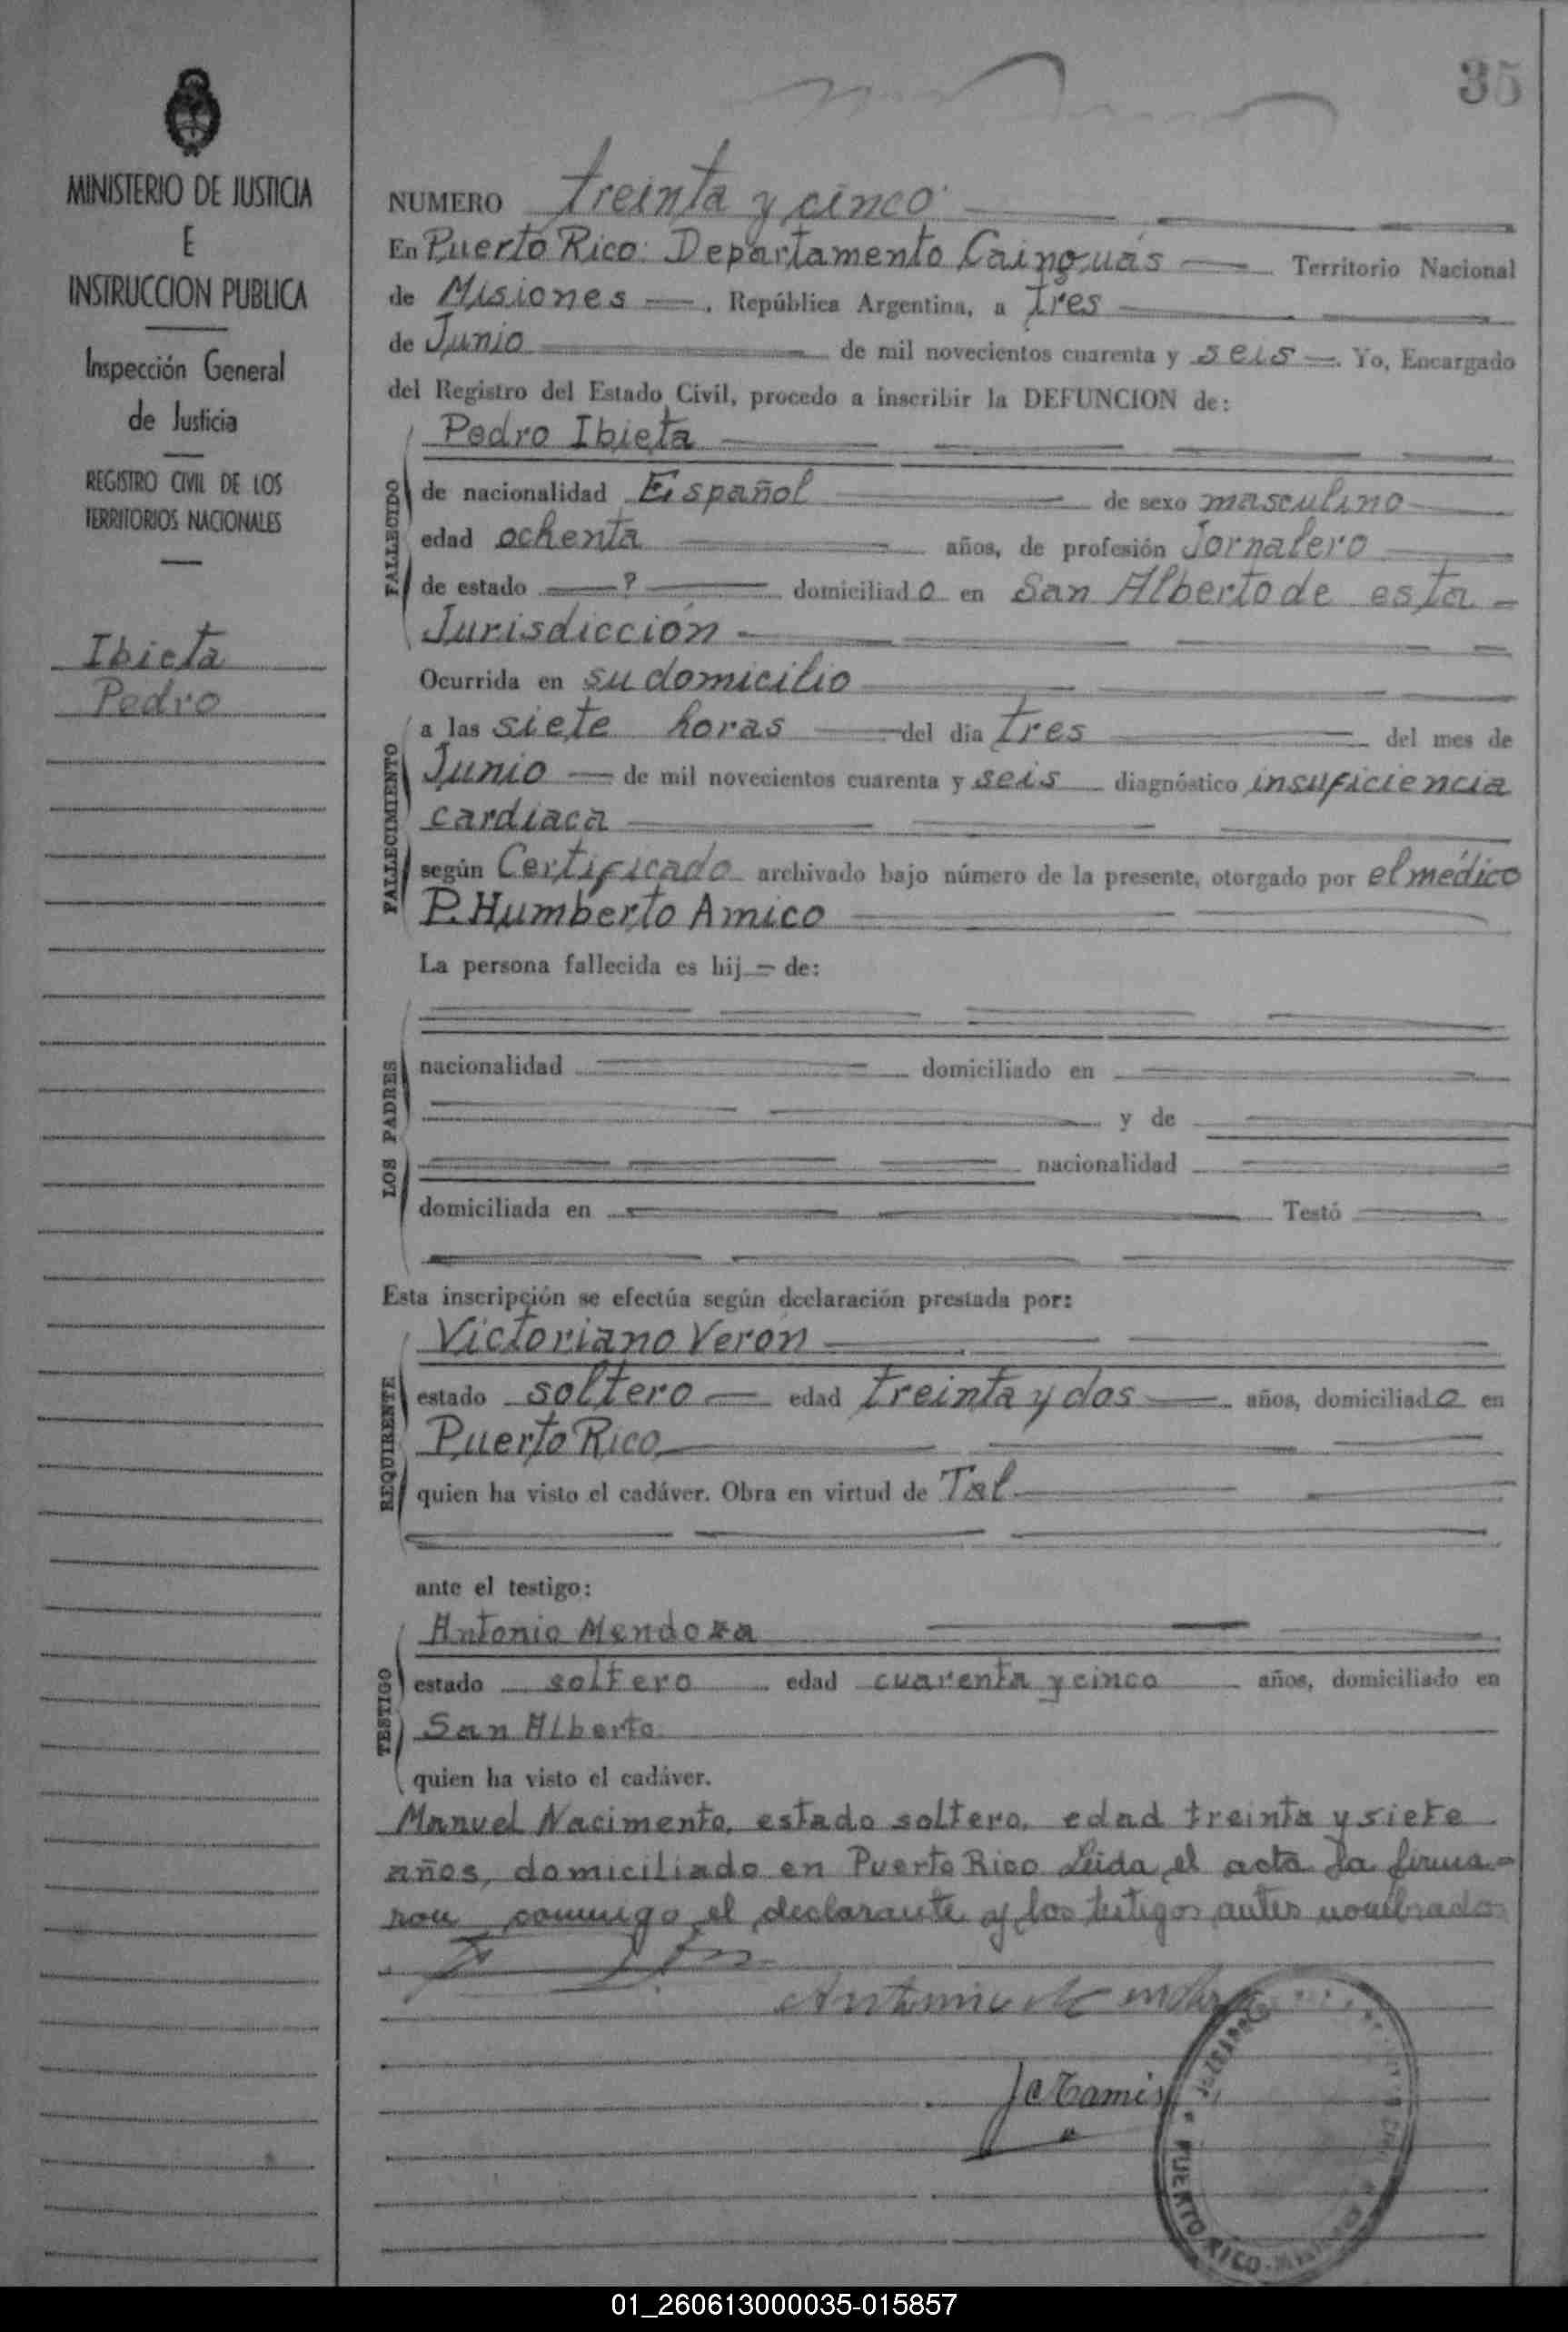 35
MINISTERIO DE JUSTICIA
E
INSTRUCCION PUBLICA
Inspección General
de Justicia
REGISTRO CIVIL DE LOS
TERRITORIOS NACIONALES
Ibieta
Pedro
NUMERO treinta y cinco
En Puerto Rico: Departamento Cainguás Territorio Nacional
de Misiones , República Argentina, a tres
de Junio de mil novecientos cuarenta y seis . Yo, Encargado
del Registro del Estado Civil, procedo a inscribir la DEFUNCION de:
Pedro Ibieta
FALLECIDO
de nacionalidad Español de sexo masculino
edad ochenta años, de profesión Jornalero
de estado ? domiciliado en San Alberto de esta
Jurisdicción
Ocurrida en su domicilio
FALLECIMIENTO
a las siete horas del día tres del mes de
Junio de mil novecientos cuarenta y seis diagnóstico insuficiencia
cardiaca
según Certificado archivado bajo número de la presente, otorgado por el médico
P. Humberto Amico
La persona fallecida es hij de:
LOS PADRES
nacionalidad domiciliado en
y de
nacionalidad
domiciliada en Testó
Esta inscripción se efectúa según declaración prestada por:
REQUIRENTE
Victoriano Verón
estado soltero edad treinta y dos años, domiciliado en
Puerto Rico
quien ha visto el cadáver. Obra en virtud de Tal
ante el testigo:
TESTIGO
Antonio Mendoza
estado soltero edad cuarenta y cinco años, domiciliado en
San Alberto
quien ha visto el cadáver.
Manuel Nacimento, estado soltero, edad treinta y siete
años, domiciliado en Puerto Rico Leida el acta la firma-
ron conmigo el declarante y los testigos antes nombrados
Antonio Mendoza
PUERTO RICO - MISIONES
01_260613000035-015857